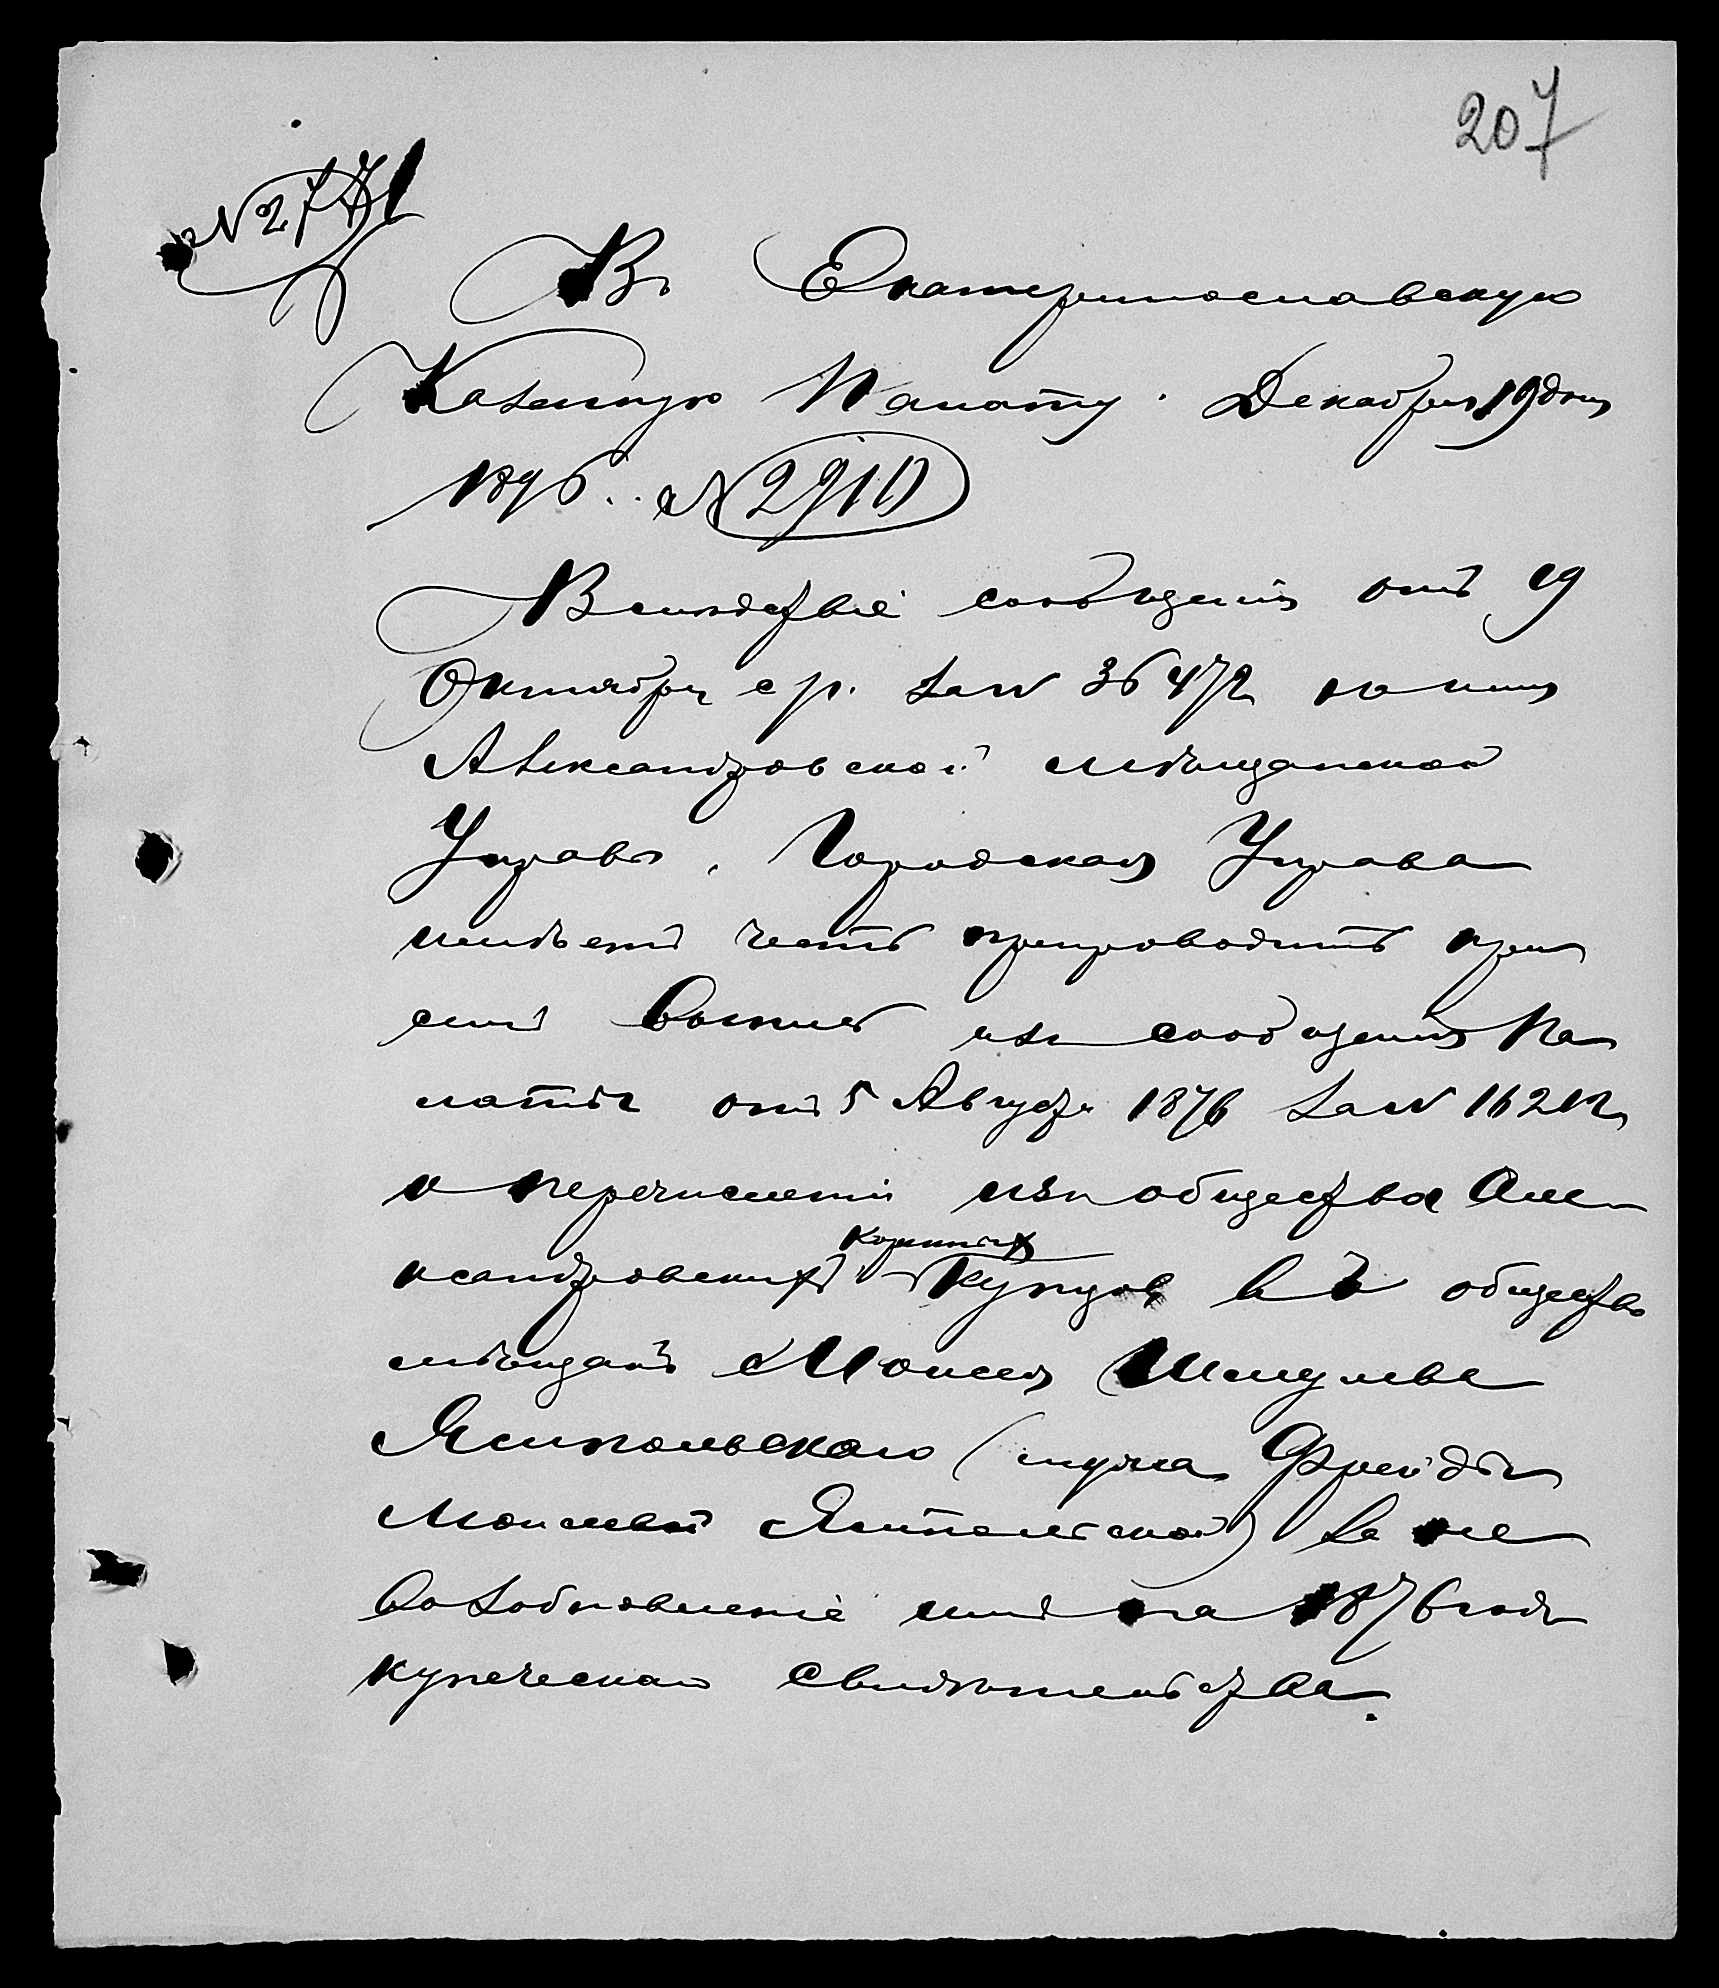 207
№ 2771
Въ Екатеринославскую
Казенную Палату. Декабря 19 дня
1896. № 2910
Вслѣдствіе сообщенія отъ 19
Октября с.г. за № 36472 на имя
Александровской мѣщанской
Управы, Городская Управа
имѣетъ честь препроводить при
семъ копію изъ сообщенія Па
латы отъ 5 Августа 1876 за №
о перечисленіи изъ общества Але
ксандровскихъ купцовъ въ общество
мѣщанъ Моисея Шмулева
Ямпольскаго (мужа Фрейды
Ямпольской) за не
возобновленіе имъ на 1876 годъ
купеческаго свидѣтельства.